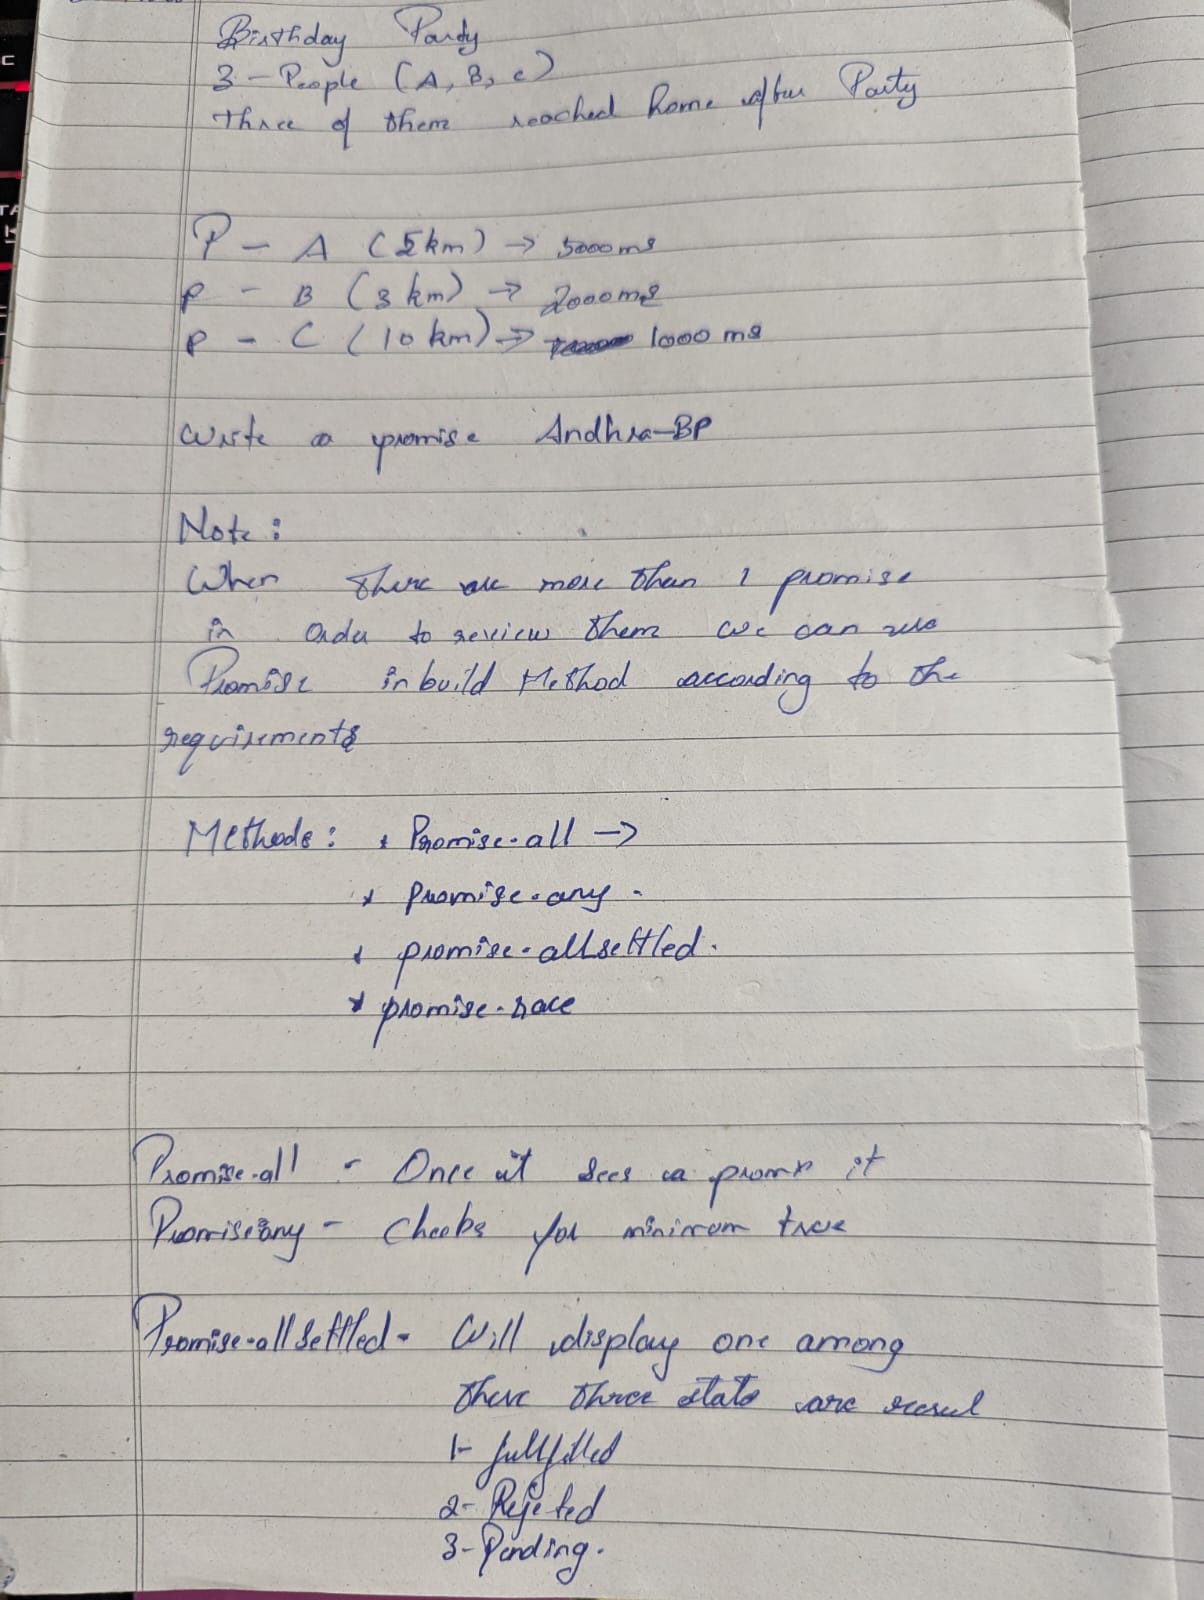 Birthday Party
3 - People (A, B, C)
three of them reached home after Party
P - A (5 km) → 5000 ms
P - B (3 km) → 2000 ms
P - C (10 km) → 1000 ms
Write a promise Andhra-BP
Note:
When there are more than 1 promise
in order to review them we can use
Promise inbuild Method according to the
requirements
Methods: * Promise.all →
* Promise.any -
* promise.allsettled.
* promise.race
Promise.all - Once it sees a it
Promise any - Checks for minimum true
Promise.allsettled - Will display one among
there three state are
1- fullfilled
2- Rejeted
3- Pending.